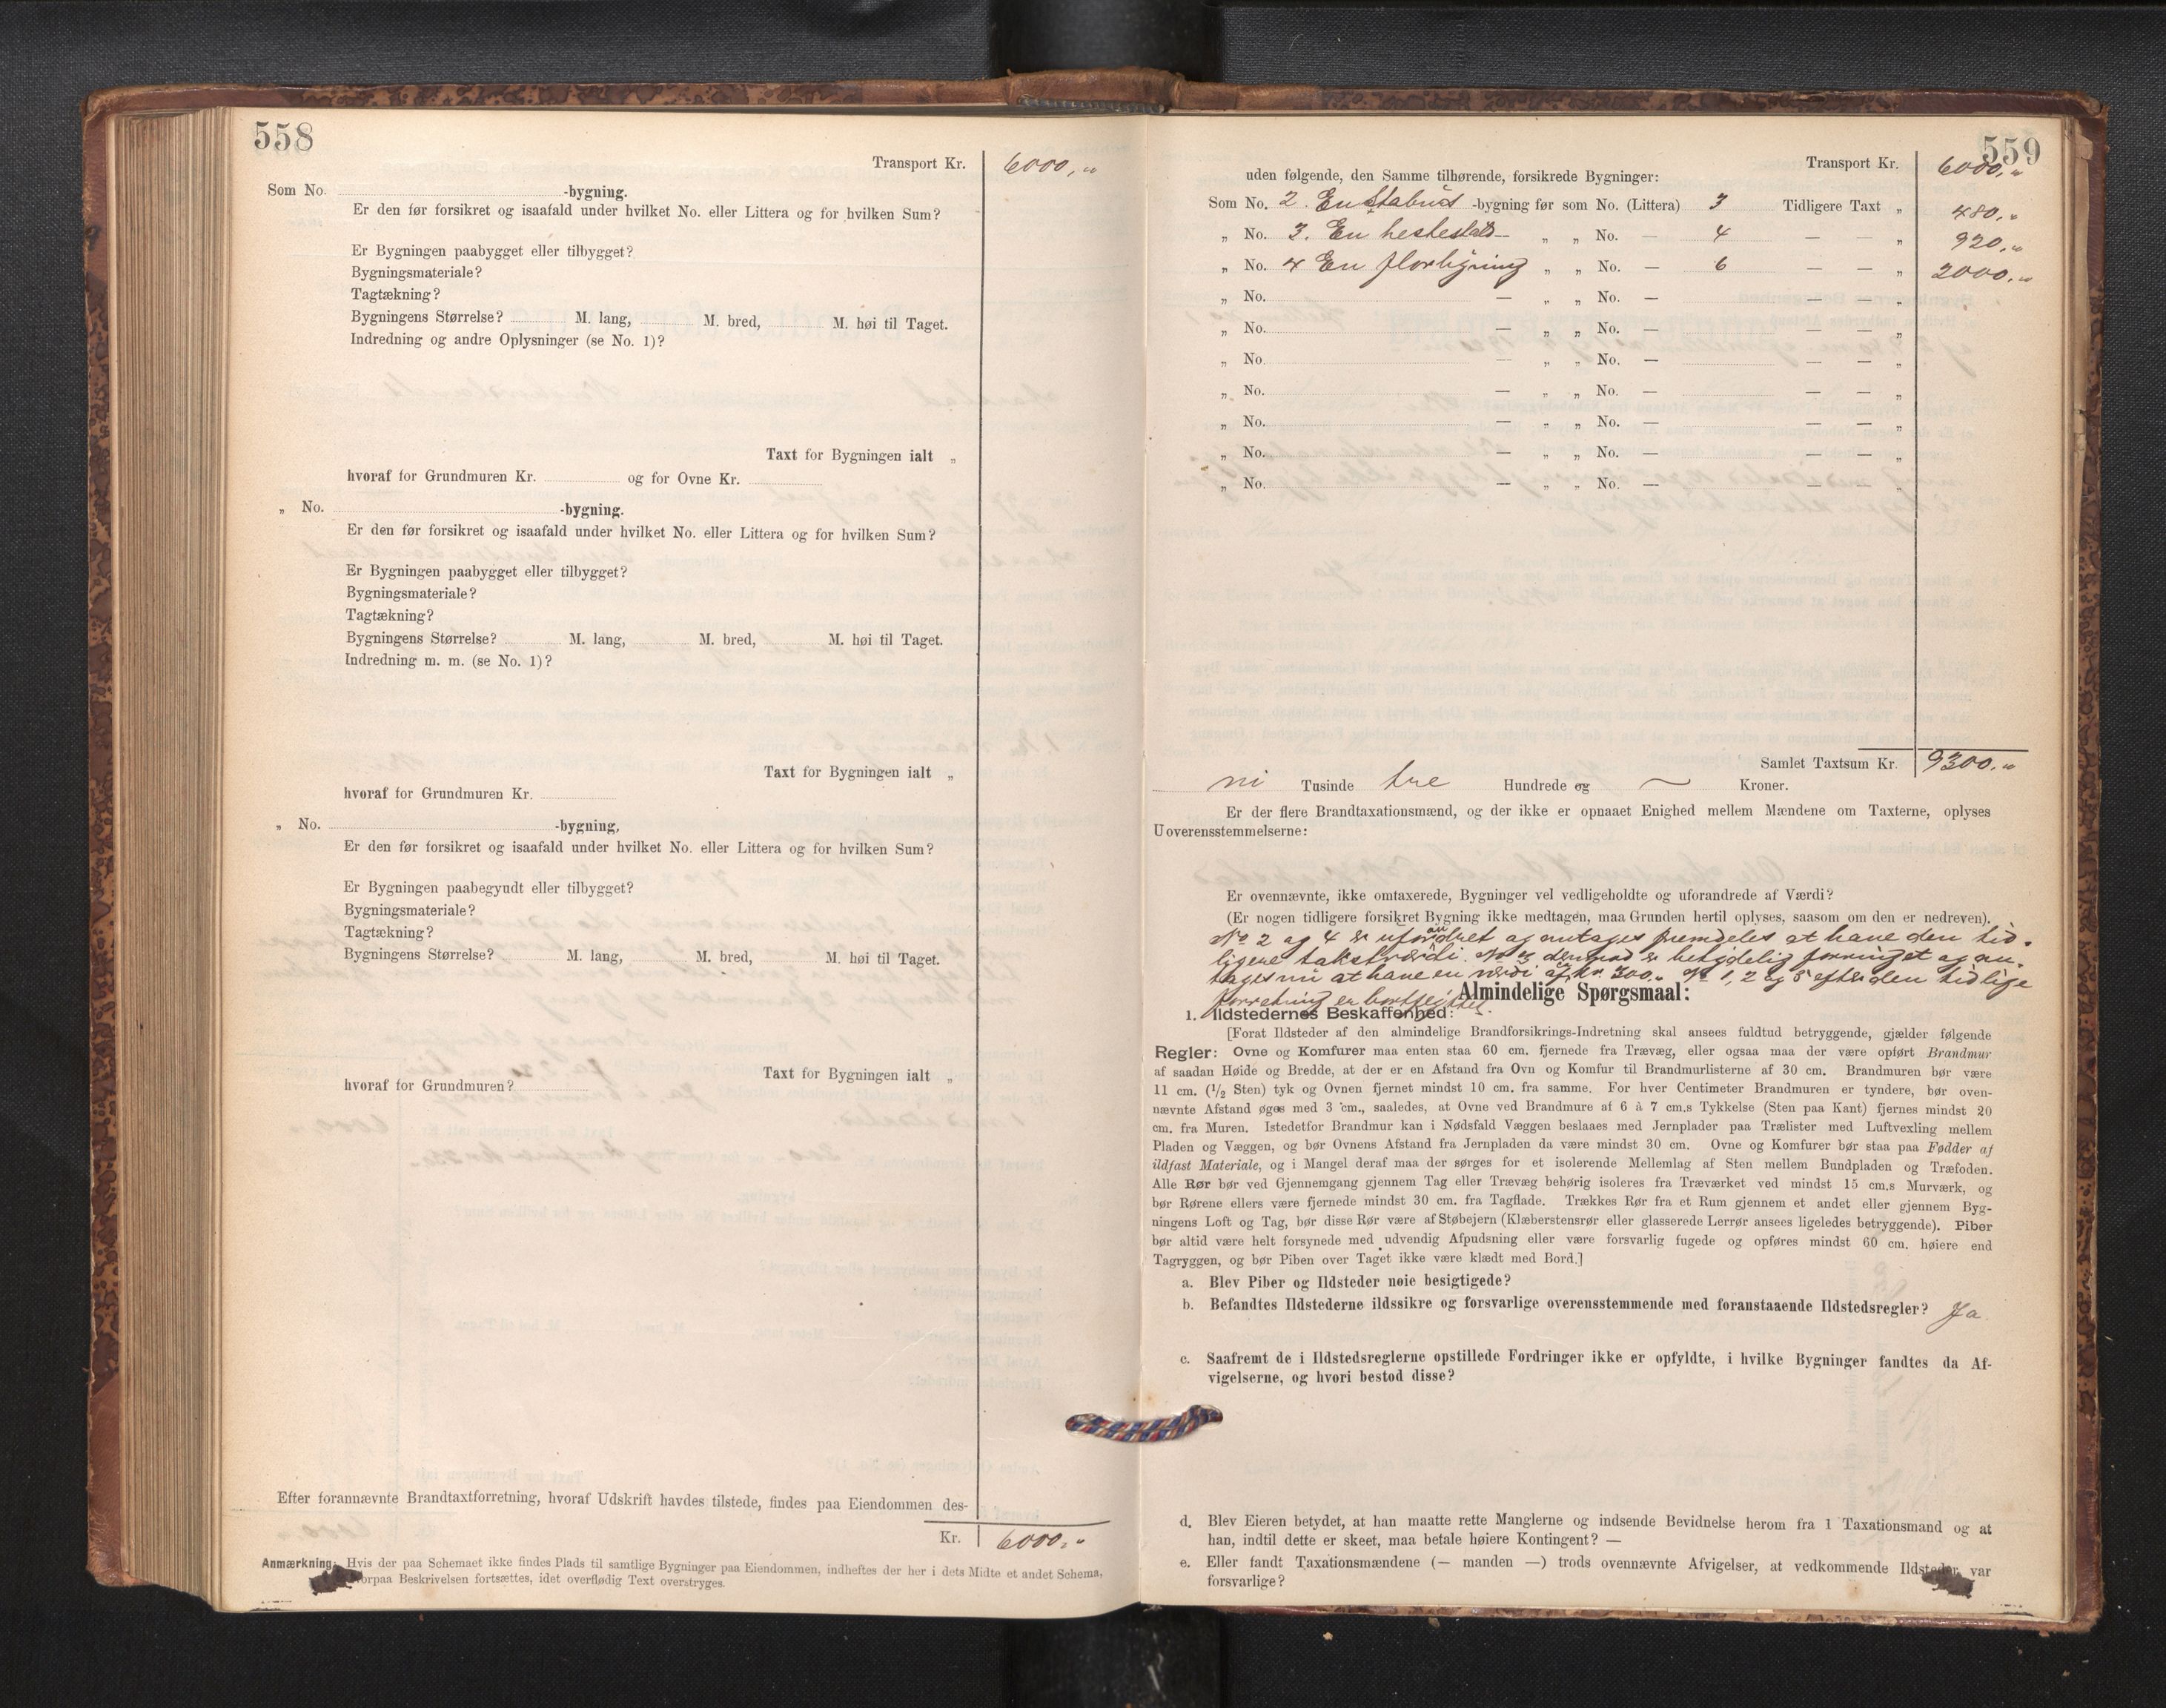 558
Transport Kr. 6000,"
Som No. -bygning.
Er den før forsikret og isaafald under hvilket No. eller Littera og for hvilken Sum?
Er Bygningen paabygget eller tilbygget?
Bygningsmateriale?
Tagtækning?
Bygningens Størrelse? M. lang, M. bred, M. høi til Taget.
Indredning og andre Oplysninger (se No. 1)?
Taxt for Bygningen ialt „
hvoraf for Grundmuren Kr. og for Ovne Kr.
„ No. -bygning.
Er den før forsikret og isaafald under hvilket No. eller Littera og for hvilken Sum?
Er Bygningen paabygget eller tilbygget?
Bygningsmateriale?
Tagtækning?
Bygningens Størrelse? M. lang, M. bred, M. høi til Taget.
Indredning m. m. (se No. 1)?
Taxt for Bygningen ialt „
hvoraf for Grundmuren Kr.
„ No. -bygning,
Er den før forsikret og isaafald under hvilket No. eller Littera og for hvilken Sum?
Er Bygningen paabegyndt eller tilbygget?
Bygningsmateriale?
Tagtækning?
Bygningens Størrelse? M. lang, M. bred, M. høi til Taget.
Taxt for Bygningen ialt „
hvoraf for Grundmuren?
Efter forannævnte Brandtaxtforretning, hvoraf Udskrift havdes tilstede, findes paa Eiendommen des-
Kr. 6000,"
Anmærkning: Hvis der paa Schemaet ikke findes Plads til samtlige Bygninger paa Eiendommen, indheftes der her i dets Midte et andet Schema,
hvorpaa Beskrivelsen fortsættes, idet overflødig Text overstryges.
559
Transport Kr. 6000,"
uden følgende, den Samme tilhørende, forsikrede Bygninger:
Som No. 2. En staburs -bygning før som No. (Littera) 3 Tidligere Taxt „ 480,"
„ No. 3. En hestestald — „ „ No. — 4 — — „ 920,"
„ No. 4 En florbygning „ „ No. — 6 — — „ 2000,"
„ No. — „ „ No. — „
„ No. — „ „ No. — — — „
„ No. — „ „ No. — — — „
„ No. — „ „ No. — — — „
„ No. — „ „ No. — — — „
„ No. — „ „ No. — — — „
„ No. — „ „ No. — — — „
Samlet Taxtsum Kr. 9300,"
ni Tusinde tre Hundrede og ~ Kroner.
Er der flere Brandtaxationsmænd, og der ikke er opnaaet Enighed mellem Mændene om Taxterne, oplyses
Uoverensstemmelserne:
Er ovennævnte, ikke omtaxerede, Bygninger vel vedligeholdte og uforandrede af Værdi?
(Er nogen tidligere forsikret Bygning ikke medtagen, maa Grunden hertil oplyses, saasom om den er nedreven).
No 2 og 4 er uforandret og antages fremdeles at have den tid-
ligere takstværdi. No 3 derimod er betydelig forringet og an-
tages nu at have en værdi af kr. 300." No 1, 2 og 5 efter den tidlige
forretning er bortfeiet.
Almindelige Spørgsmaal:
1. Ildstedernes Beskaffenhed:
[Forat Ildsteder af den almindelige Brandforsikrings-Indretning skal ansees fuldtud betryggende, gjælder følgende
Regler: Ovne og Komfurer maa enten staa 60 cm. fjernede fra Trævæg, eller ogsaa maa der være opført Brandmur
af saadan Høide og Bredde, at der er en Afstand fra Ovn og Komfur til Brandmurlisterne af 30 cm. Brandmuren bør være
11 cm. (1/2 Sten) tyk og Ovnen fjernet mindst 10 cm. fra samme. For hver Centimeter Brandmuren er tyndere, bør oven-
nævnte Afstand øges med 3 cm., saaledes, at Ovne ved Brandmure af 6 à 7 cm.s Tykkelse (Sten paa Kant) fjernes mindst 20
cm. fra Muren. Istedetfor Brandmur kan i Nødsfald Væggen beslaaes med Jernplader paa Trælister med Luftvexling mellem
Pladen og Væggen, og bør Ovnens Afstand fra Jernpladen da være mindst 30 cm. Ovne og Komfurer bør staa paa Fødder af
ildfast Materiale, og i Mangel deraf maa der sørges for et isolerende Mellemlag af Sten mellem Bundpladen og Træfoden.
Alle Rør bør ved Gjennemgang gjennem Tag eller Trævæg behørig isoleres fra Træværket ved mindst 15 cm.s Murværk, og
bør Rørene ellers være fjernede mindst 30 cm. fra Tagflade. Trækkes Rør fra et Rum gjennem et andet eller gjennem Byg-
ningens Loft og Tag, bør disse Rør være af Støbejern (Klæberstensrør eller glasserede Lerrør ansees ligeledes betryggende). Piber
bør altid være helt forsynede med udvendig Afpudsning eller være forsvarlig fugede og opføres mindst 60 cm. høiere end
Tagryggen, og bør Piben over Taget ikke være klædt med Bord.]
a. Blev Piber og Ildsteder nøie besigtigede?
b. Befandtes Ildstederne ildssikre og forsvarlige overensstemmende med foranstaaende Ildstedsregler? Ja
c. Saafremt de i Ildstedsreglerne opstillede Fordringer ikke er opfyldte, i hvilke Bygninger fandtes da Af-
vigelserne, og hvori bestod disse?
d. Blev Eieren betydet, at han maatte rette Manglerne og indsende Bevidnelse herom fra 1 Taxationsmand og at
han, indtil dette er skeet, maa betale høiere Kontingent? —
e. Eller fandt Taxationsmændene (— manden —) trods ovennævnte Afvigelser, at vedkommende Ildsteder var
forsvarlige?